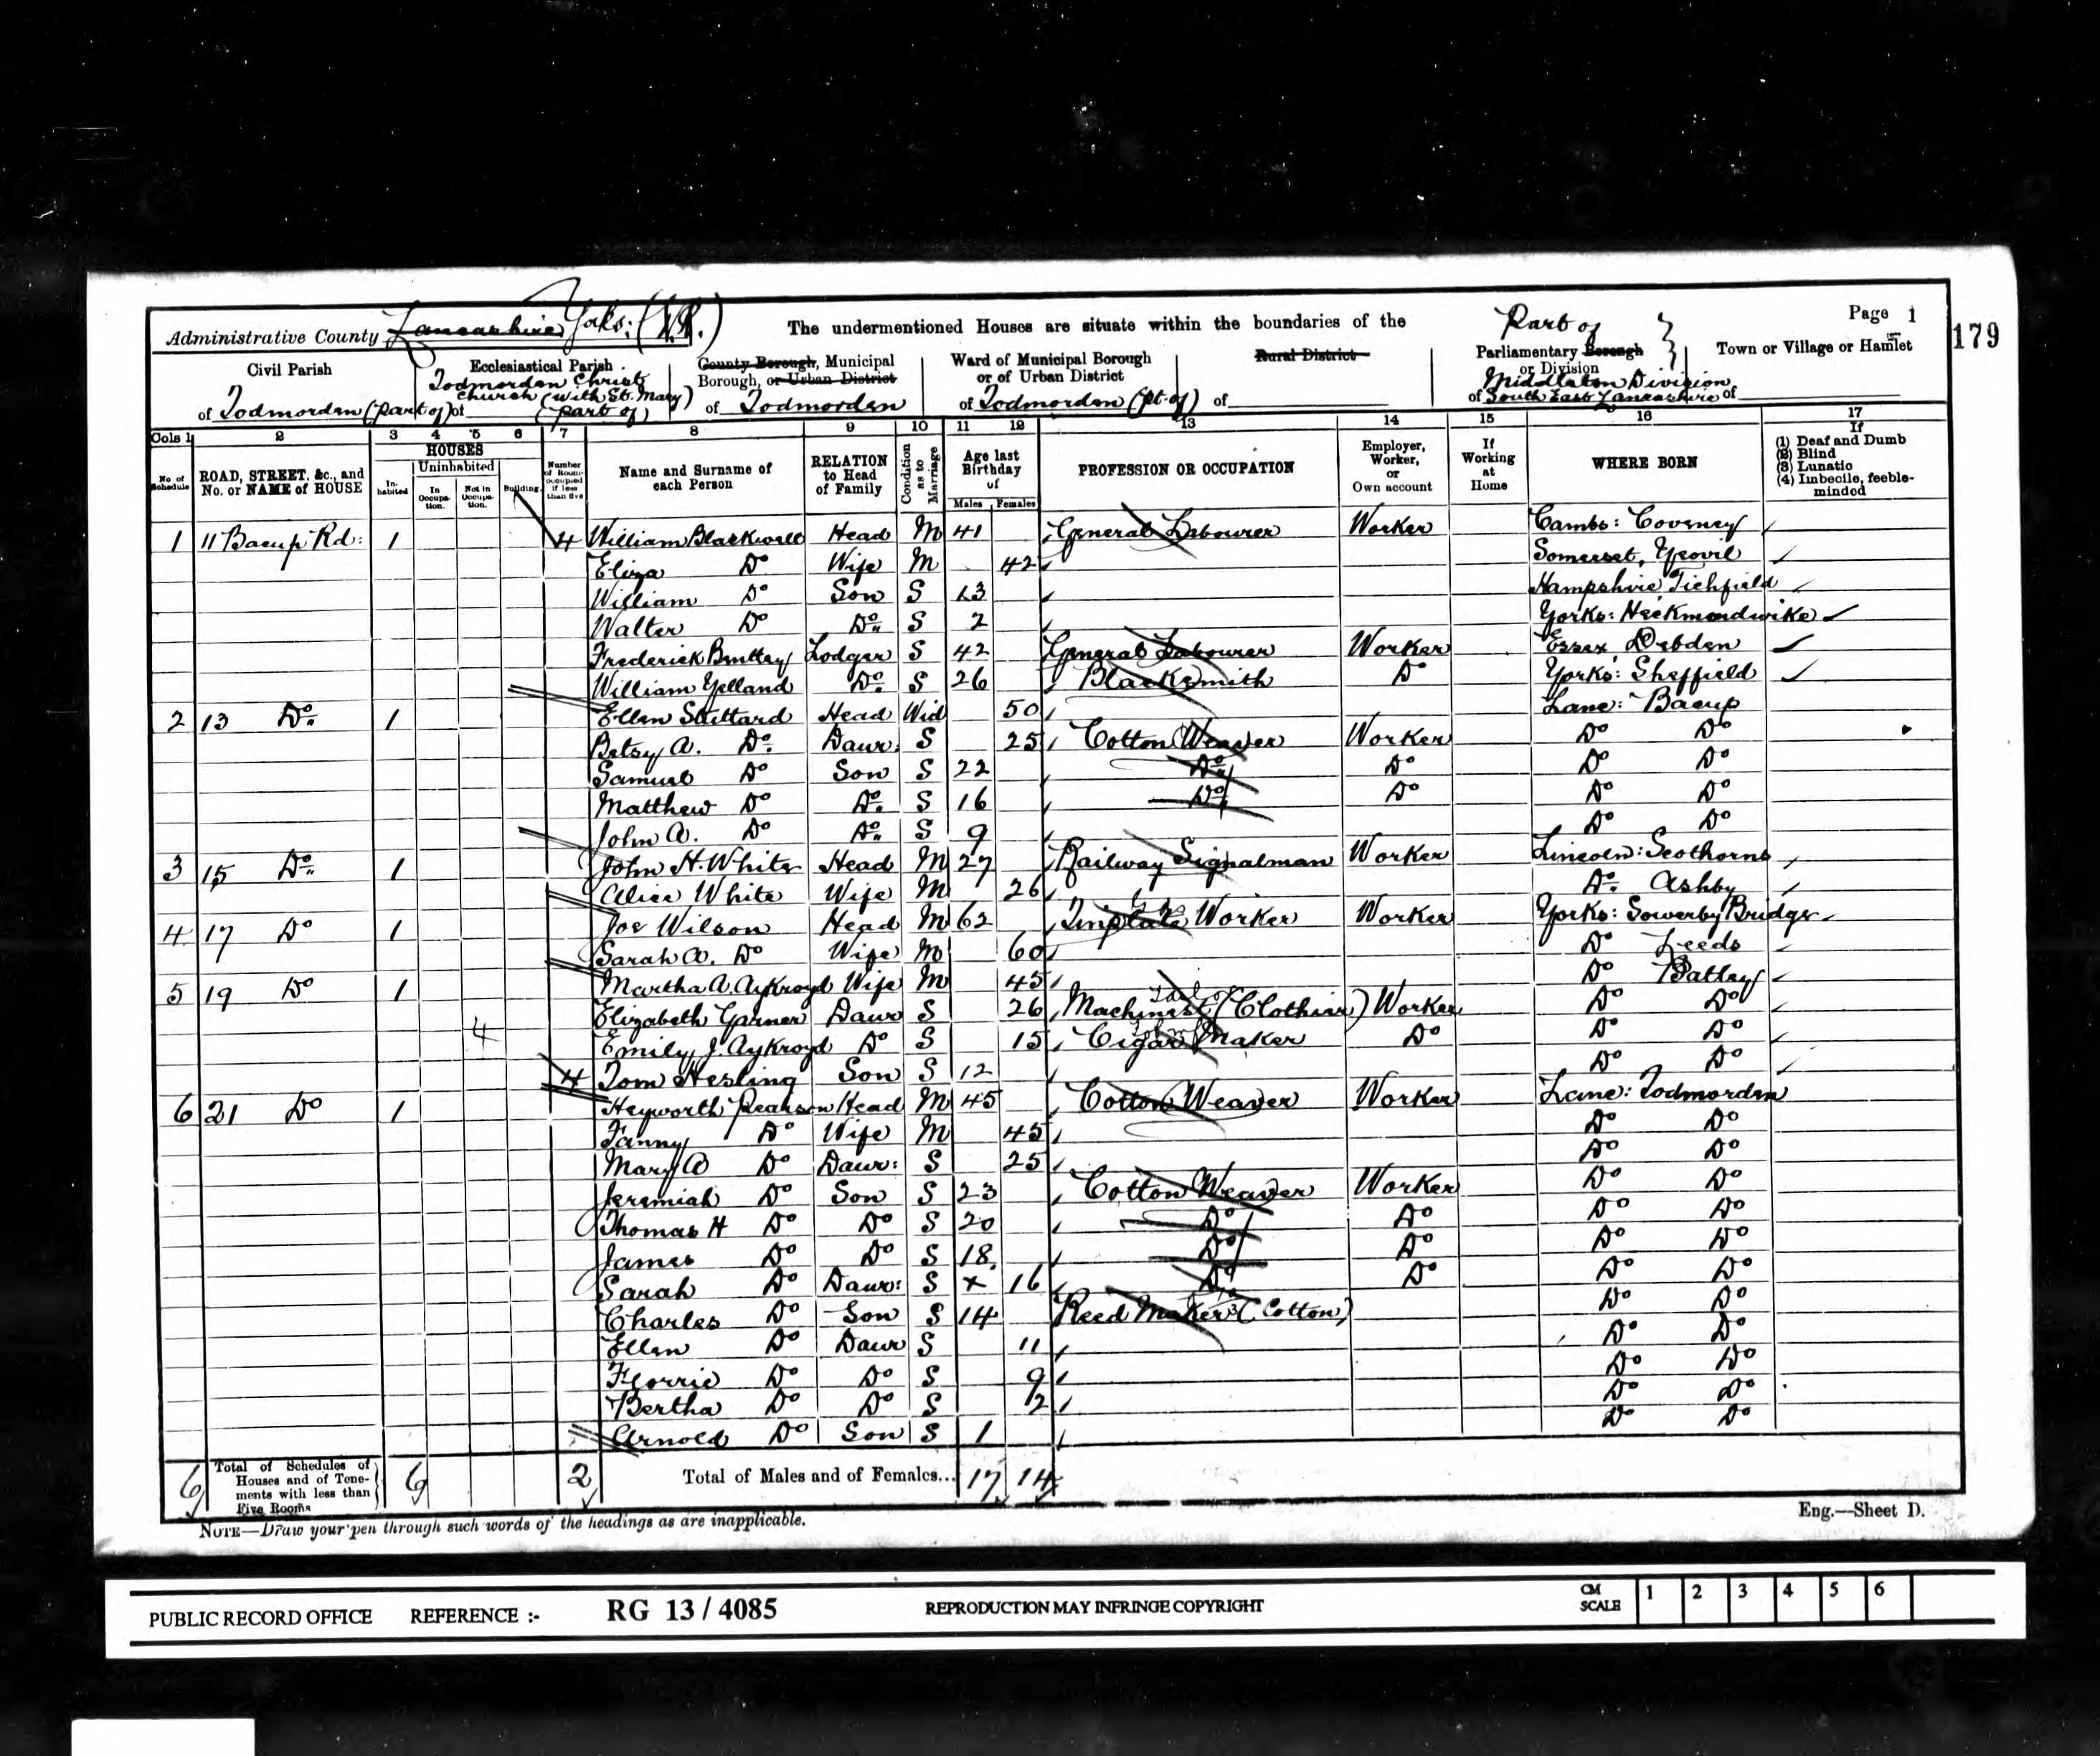 Administrative County Lancashire Yorks: (W.R.) The undermentioned Houses are situate within the boundaries of the Page 1
179
Civil Parish of Todmorden (part of)
Ecclesiastical Parish of Todmorden Christ Church (with St. Mary) (part of)
County Borough, Municipal Borough, or Urban District of Todmorden
Ward of Municipal Borough or of Urban District of Todmorden (pt. of)
Rural District of
Part of Parliamentary Borough or Division of Middleton Division South East Lancashire
Town or Village or Hamlet of
Cols 1 2 3 4 5 6 7 8 9 10 11 12 13 14 15 16 17
No. of Schedule
ROAD, STREET, &c., and No. or NAME of HOUSE
HOUSES
Inhabited
Uninhabited
In Occupation.
Not in Occupation.
Building
Number of Rooms occupied if less than five
Name and Surname of each Person
RELATION to Head of Family
Condition as to Marriage
Age last Birthday of
Males Females
PROFESSION OR OCCUPATION
Employer, Worker, or Own account
If Working at Home
WHERE BORN
If
(1) Deaf and Dumb
(2) Blind
(3) Lunatic
(4) Imbecile, feeble-minded
1 11 Bacup Rd: 1 4 William Blackwell Head M 41 General Labourer Worker Cambs: Coveney
Eliza Do Wife M 42 Somerset, Yeovil
William Do Son S 13 Hampshire Tichfield
Walter Do Do S 2 Yorks: Heckmondwike
Frederick Lodger S 42 General Labourer Worker Essex, Debden
William Yelland Do S 26 Blacksmith Do Yorks: Sheffield
2 13 Do 1 Ellen Suttard Head Wid 50 Lanc: Bacup
Betsy A. Do Daur. S 25 Cotton Weaver Worker Do Do
Samuel Do Son S 22 Do Do Do Do
Matthew Do Do S 16 Do Do Do Do
John A. Do Do S 9 Do Do
3 15 Do 1 John H. White Head M 27 Railway Signalman Worker Lincoln: Scothorne
Alice White Wife M 26 Do Ashby
4 17 Do 1 Joe Wilson Head M 62 Tinplate Worker Worker Yorks: Sowerby Bridge
Sarah A. Do Wife M 60 Do Leeds
5 19 Do 1 Martha A. Aykroyd Wife M 45 Do Batley
Elizabeth Garner Daur S 26 Machinist (Clothier) Worker Do Do
4 Emily J. Aykroyd Do S 15 Cigar Maker Do Do Do
4 Tom Hesling Son S 12 Do Do
6 21 Do 1 Heyworth Pearson Head M 45 Cotton Weaver Worker Lanc: Todmorden
Fanny Do Wife M 45 Do Do
Mary A Do Daur: S 25 Do Do
Jeremiah Do Son S 23 Cotton Weaver Worker Do Do
Thomas H Do Do S 20 Do Do Do Do
James Do Do S 18 Do Do Do Do
Sarah Do Daur: S x 16 Do Do Do Do
Charles Do Son S 14 Reed Maker (Cotton) Do Do
Ellen Do Daur S 11 Do Do
Florrie Do Do S 9 Do Do
Bertha Do Do S 2 Do Do
Arnold Do Son S 1 Do Do
6 Total of Schedules of Houses and of Tenements with less than Five Rooms 6 2 Total of Males and of Females... 17 14
NOTE—Draw your pen through such words of the headings as are inapplicable.
Eng.—Sheet D.
PUBLIC RECORD OFFICE REFERENCE :- RG 13 / 4085 REPRODUCTION MAY INFRINGE COPYRIGHT CM SCALE 1 2 3 4 5 6